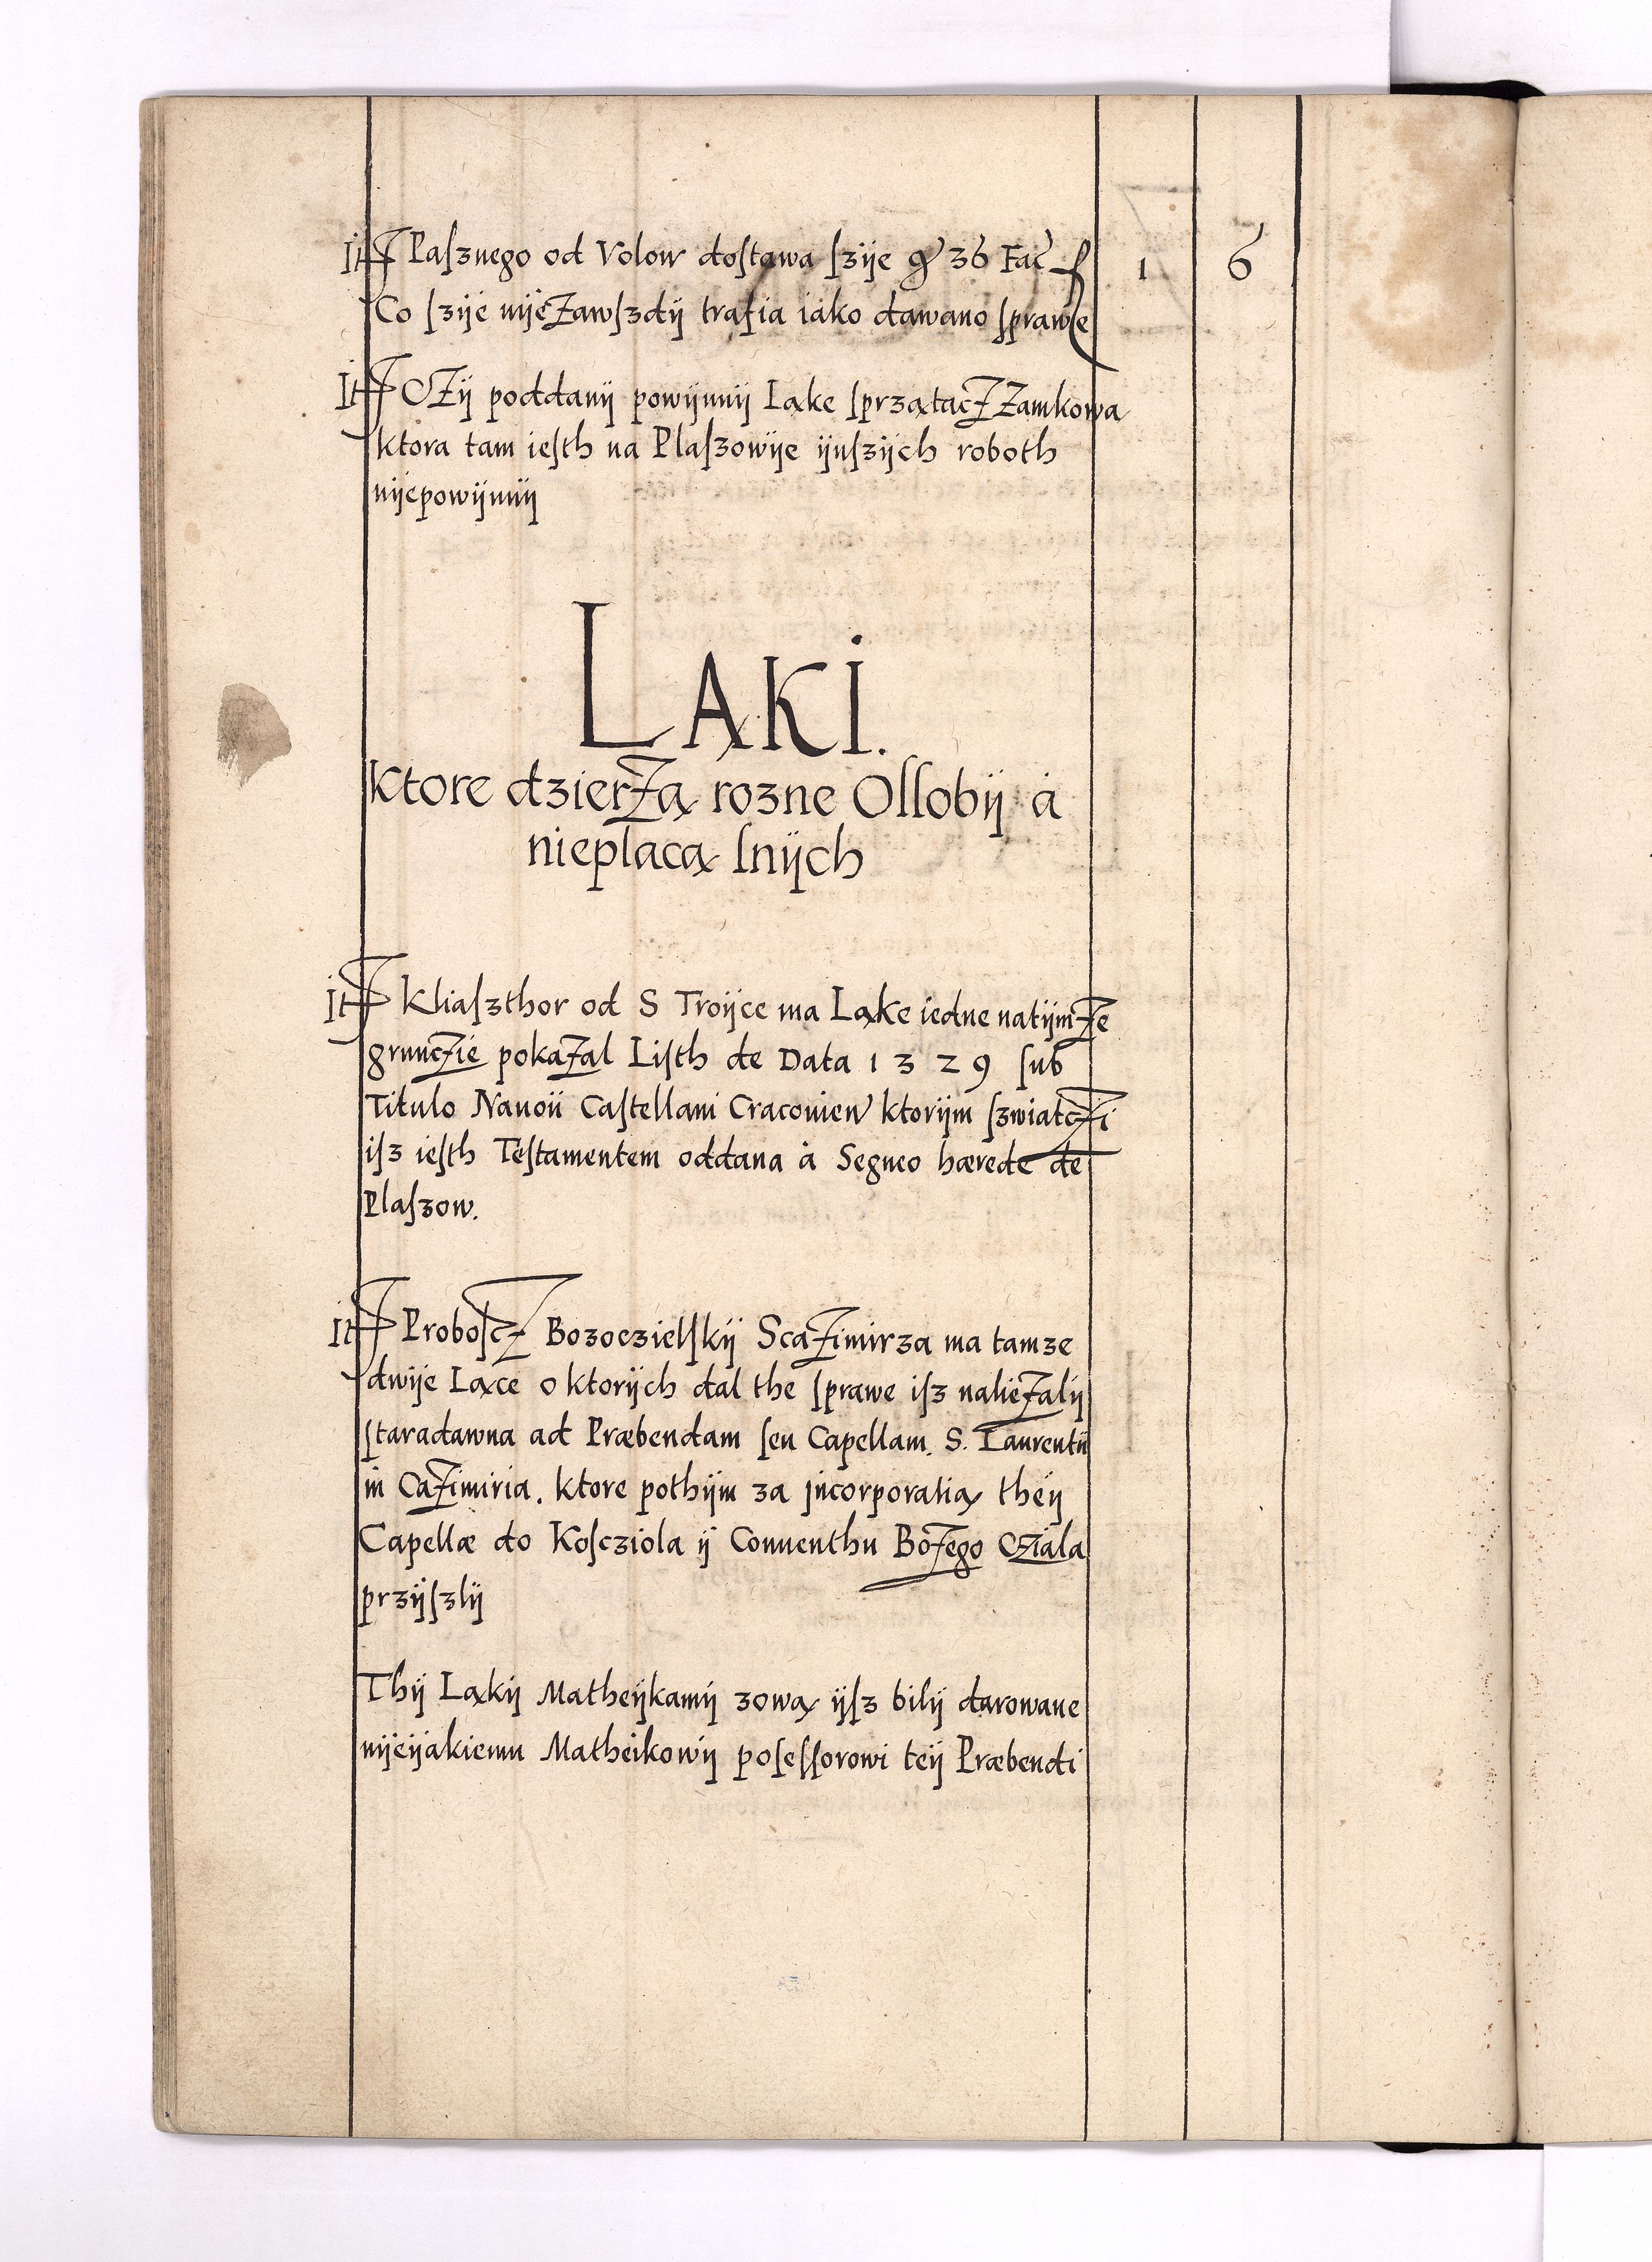 It Paſznego od Volow doſtawa ſzije g 36 Fac f 1 6
Co ſzijė nijėZawſzdij trafia iako dawano ſprawe
It CZij poddanij powijnnijLąke ſprzątacZ Zamkowa
ktora tam ieſth na Plaſzowije ijnſzijch roboth
nijepowijnnij
LĄKI.
ktore dzierZą rozne Oſſobij á
nieplacą ſnijch
It Kliaſzthor od S Troijce ma Ląke iedne natijmZe
gruncZiė pokaZal Liſth de Data 1329 ſub
Titulo Nauoii Caſtellani Cracouien ktorijm ſzwiatcZi
iſz ieſth Teſtamentem oddana á Segneo hærede de
Plaſzow.
It ProboſcZ Bozoczielſkij ScaZimirza ma tamze
dwije Lące o ktorijch dal the ſprawe iſz nalieZalij
ſtaradawna ad Præbendam ſeu Capellam. S. Laurentii
in CaZimiria. ktore pothijm za incorporatią theij
Capellæ do Koſcziola ij Conuenthu BoZego Cziala
przijſzlij
Thij Ląkij Matheijkamij zową ijſz bilij darowane
nijeijakiemu Matheikowij poſeſſorowi teij Præbendi